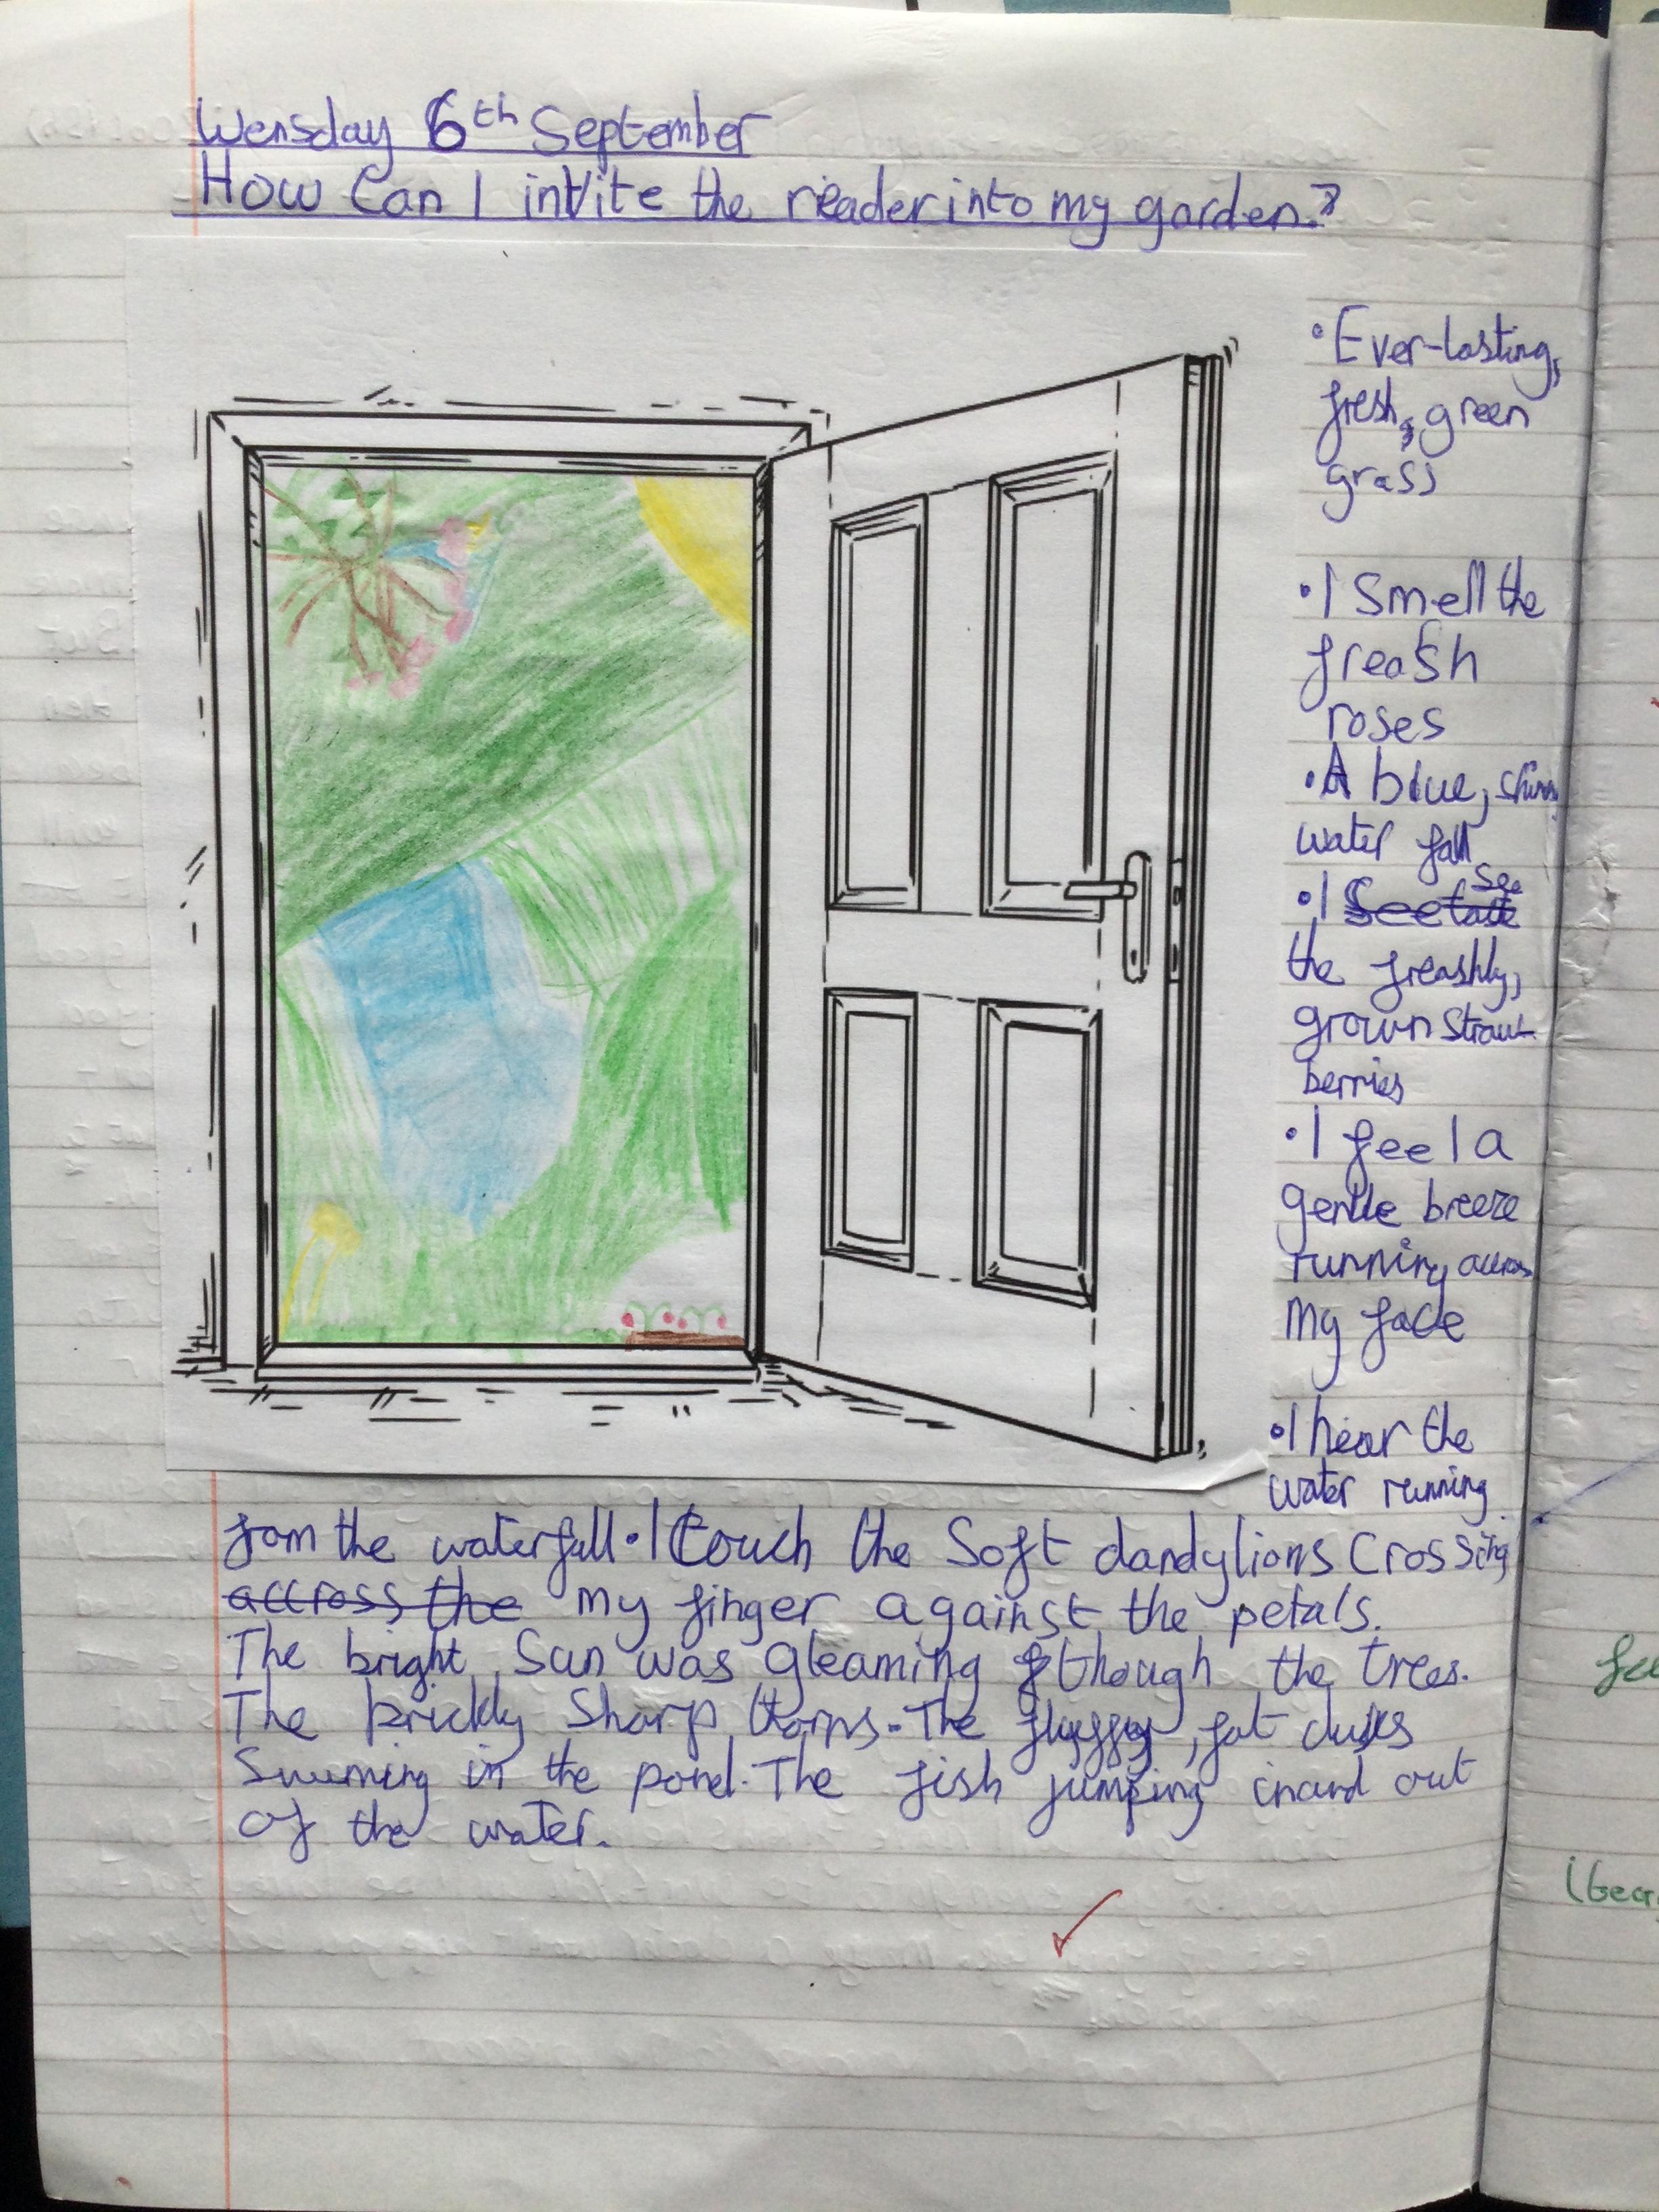 Wensday 6th September
How Can I invite the reader into my garden?
• Ever-lasting,
fresh, green
grass
• I Smell the
freash
roses
• A blue,
water fall
• I see
the freashly,
grown straw-
berries
• I feel a
gentle breeze
running accross
my face
• I hear the
water running
from the waterfall • I touch the Soft dandylions Crossing
accross the my finger against the petals.
The bright Sun was gleaming though the trees.
The prickly Sharp thorns. The fluffy, fat ducks
Swuming in the pond. The fish jumping in and out
of the water.